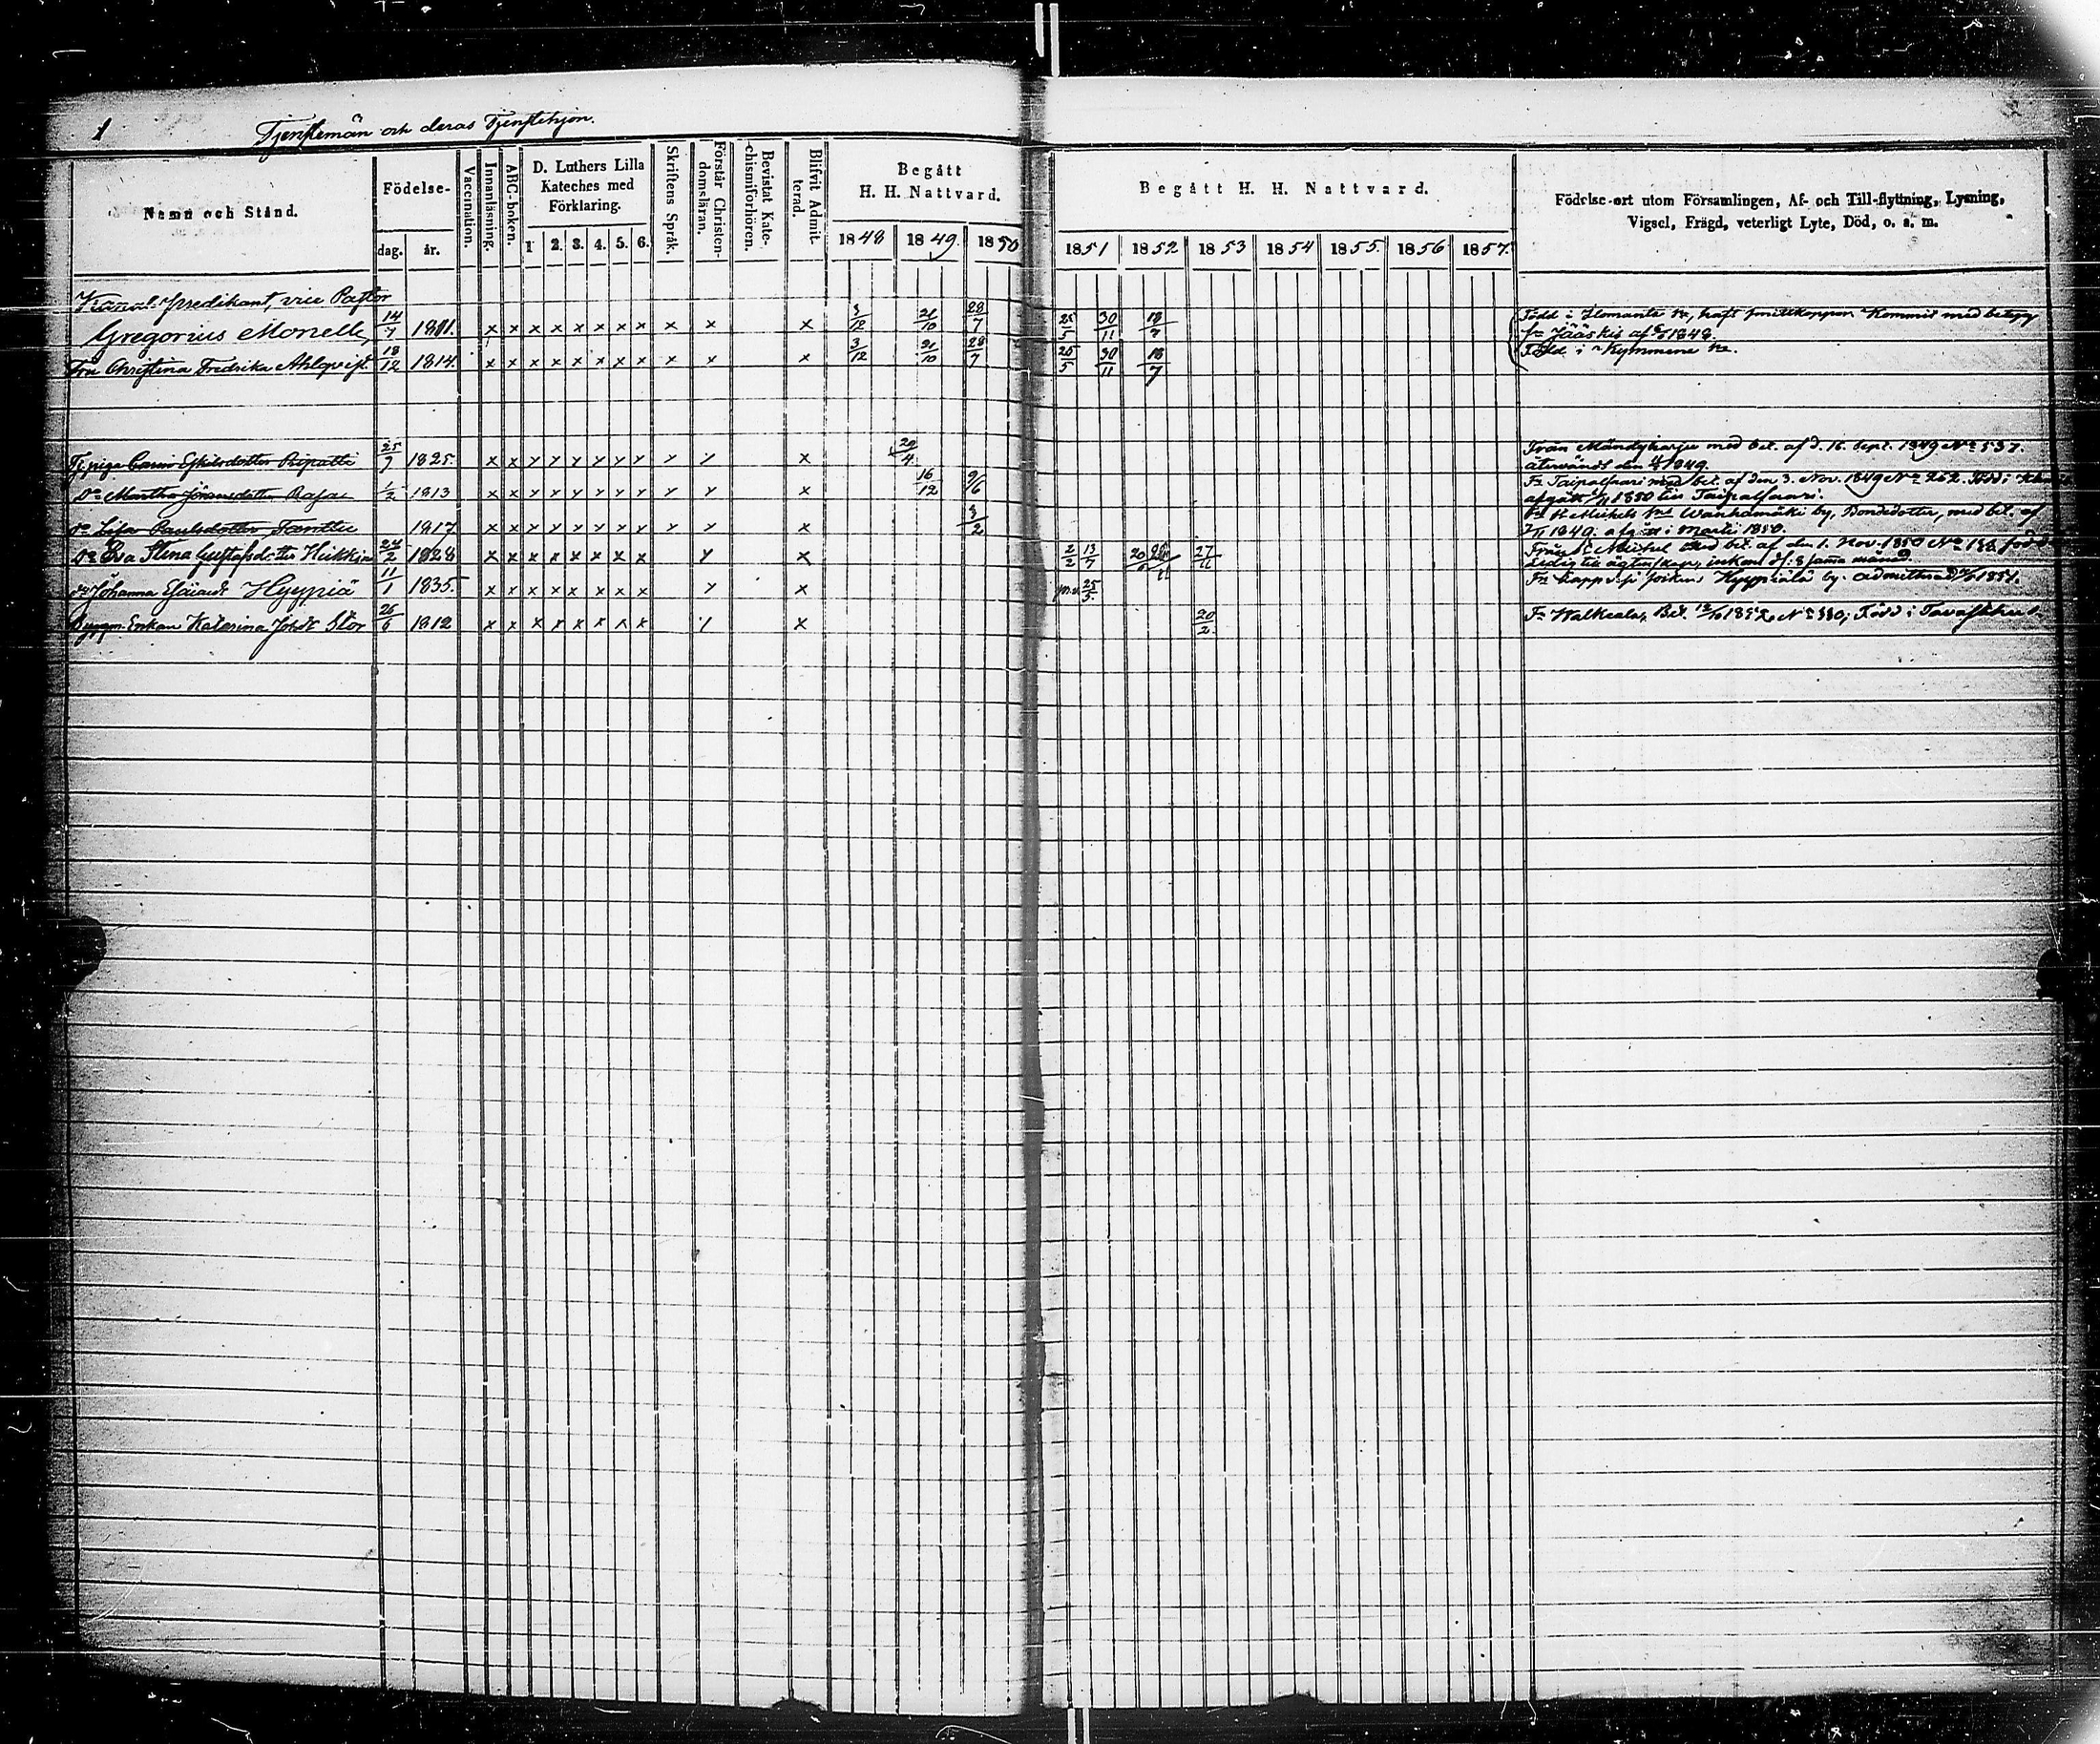 1
Tjenstemän och deras Tjenstehjon.
Namn och Stånd.
Födelse-
dag. år.
Vaccination.
Innanläsning.
ABC-boken.
D. Luthers Lilla
Kateches med
Förklaring.
1 2. 3. 4. 5. 6.
Skriftens Språk.
Förstår Christen-
domsläran.
Bevistat Kate-
chismiförhören.
Blifvit Admit-
terad.
Begått
H. H. Nattvard.
1848 1849. 1850
Begått H. H. Nattvard.
1851 1852 1853 1854 1855. 1856 1857.
Födelse-ort utom Församlingen, Af- och Till-flyttning, Lysning,
Vigsel, Frägd, veterligt Lyte, Död, o. s. m.
predikant, vice Pastor
Gregorius Monelle, 14/7 1811. x x x x x x x x x x x 3/12 21/10 28/7 25/5 30/11 18/7 Född i Ilomants sn, haft smittkoppor. Kommit med betyg
fr Jääskis af 1848.
Fru Christina Fredrika Ahlqvist. 18/12 1814. x x x x x x x x x x x 3/12 21/10 28/7 25/5 30/11 18/7 Född i Kymmene sn.
Tjpiga Carin Eskilsdotter Ripatti 25/7 1825. x x x x x x x x x x x 20/4 Från Mändyharju med bet. af d. 16. Sept. 1849 No 537.
återvändt den 1849.
Do Martha Göransdotter 1/2 1813 x x x x x x x x x x x 16/12 9/6 Fr Taipalsaari med bet. af den 3. Nov. 1849 No 262. Född i
afgått 1850 till Taipalsaari.
do Lisa Paulsdotter 1817 x x x x x x x x x x x 3/2 Fr St Michels sn Wanhamäki by, Bondedotter, med bet. af
1849. afgått i Martii 1850.
Do Eva Stina Gustafsdotter Heikkin 24/2 1828 x x x x x x x x x x 2/2 13/7 27/11 Från St Michel med bet. af den 1. Nov. 1850 No
Ledig till ägtenskap, inkom d. 8 samma månad.
do Johanna Esaiasdr Hyypiä 11/1 1835. x x x x x x x x x x 25/5. Fr Lappvesi socken Hyypiälä by. admitterad 1851.
Enkan Katarina Johdr Stor 26/6 1812 x x x x x x x x x x 20/2. Fr Walkeala, Bet. 12/10 1852 No 330; Född i Tavastehus